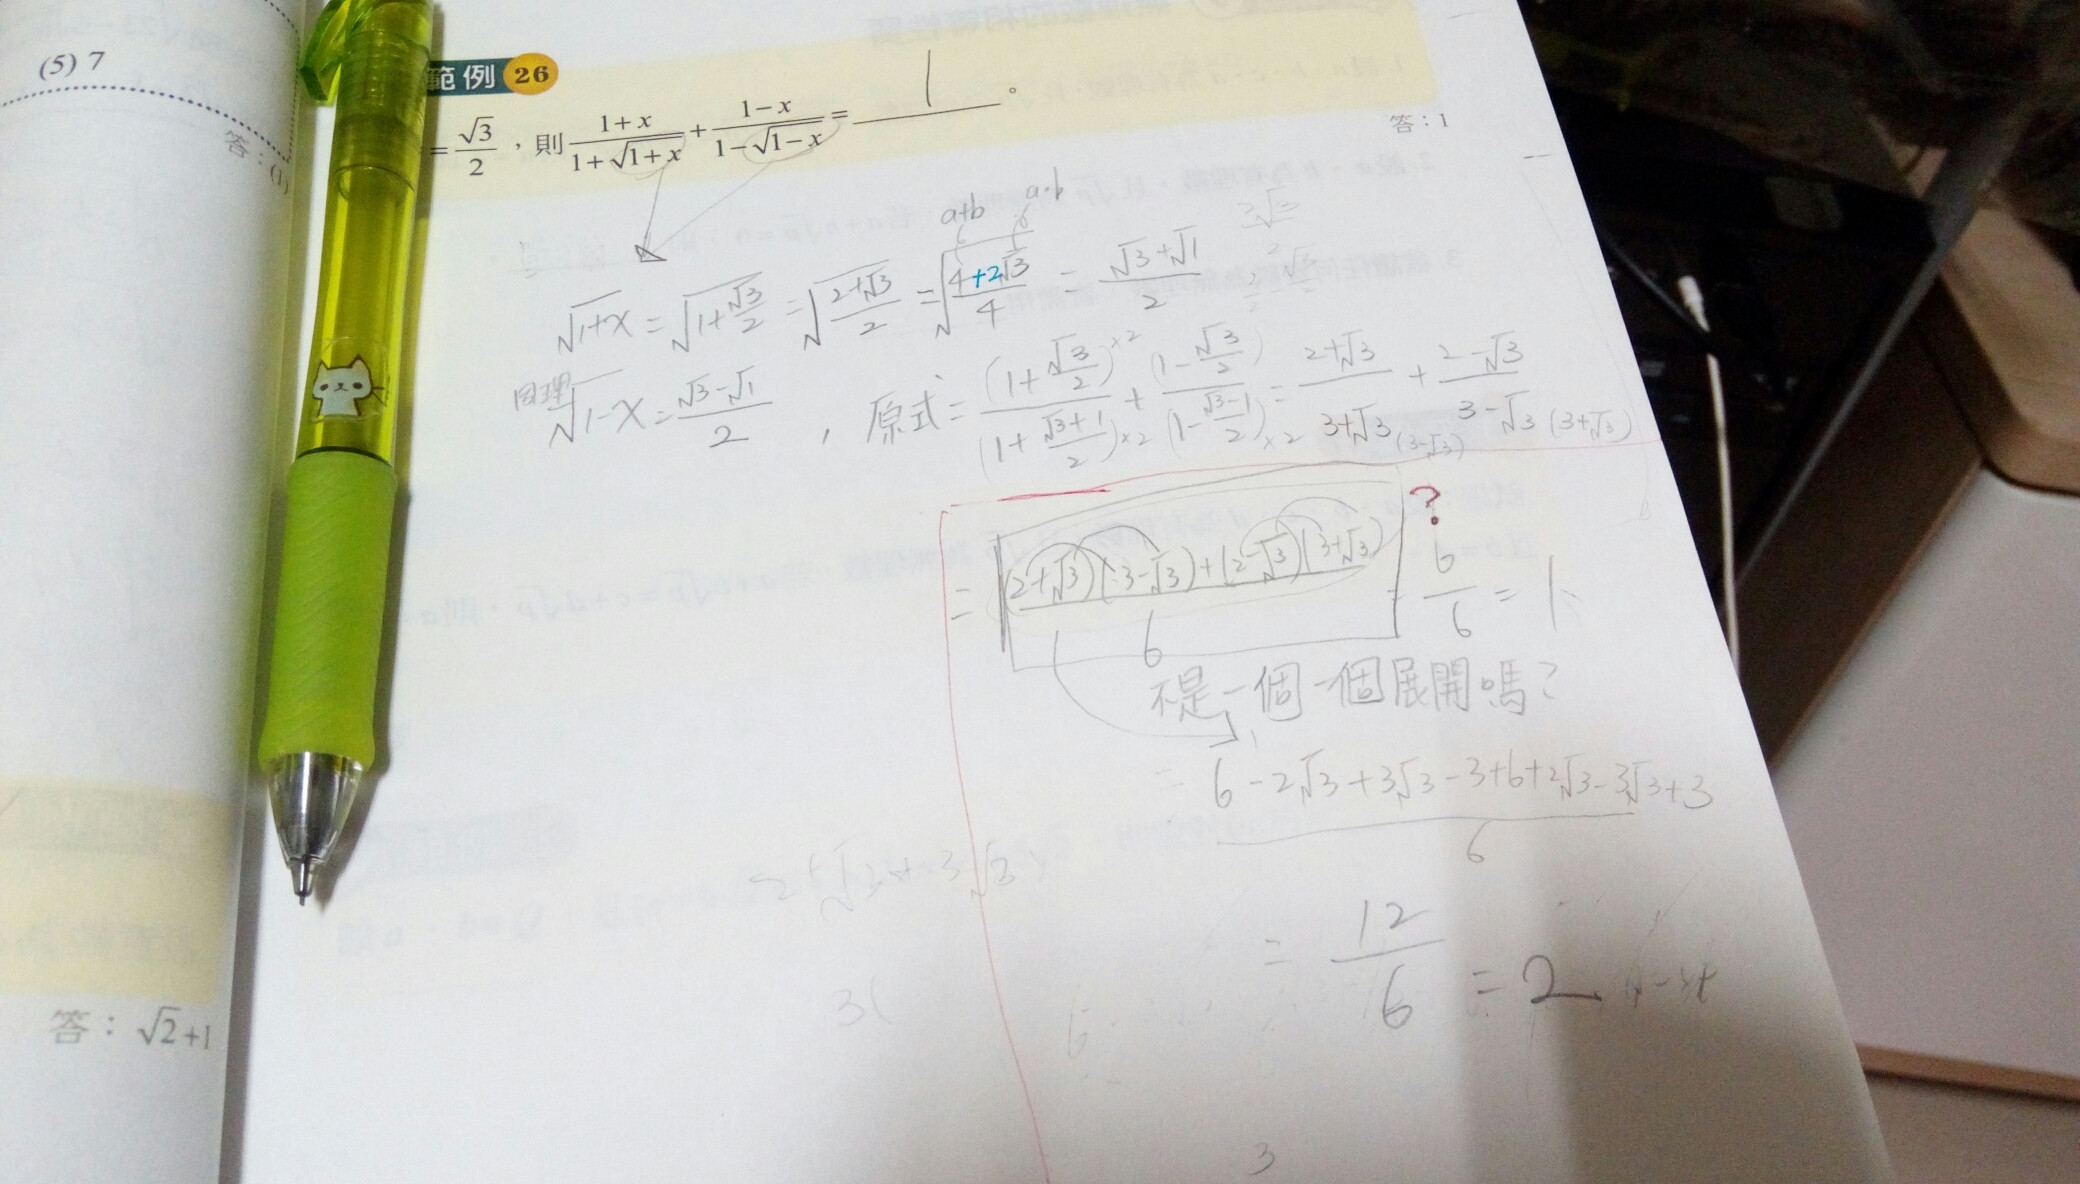 (5) 7
答:(1)
範例 26
= √3/2,則 (1+x)/(1+√(1+x)) + (1-x)/(1-√(1-x)) = 1 。
答:1
a+b a-b
√(1+x) = √(1+√3/2) = √((2+√3)/2) = √((4+2√3)/4) = (√3+√1)/2
同理 √(1-x) = (√3-√1)/2 , 原式 = (1+√3/2)×2/(1+(√3+1)/2)×2 + (1-√3/2)/(1-(√3-1)/2)×2 = (2+√3)/(3+√3)(3-√3) + (2-√3)/(3-√3)(3+√3)
= ((2+√3)(3-√3)+(2-√3)(3+√3))/6 = 6/6 = 1
?
不是一個一個展開嗎?
= (6-2√3+3√3-3+6+2√3-3√3+3)/6
= 12/6 = 2
3(
3
答:√2+1